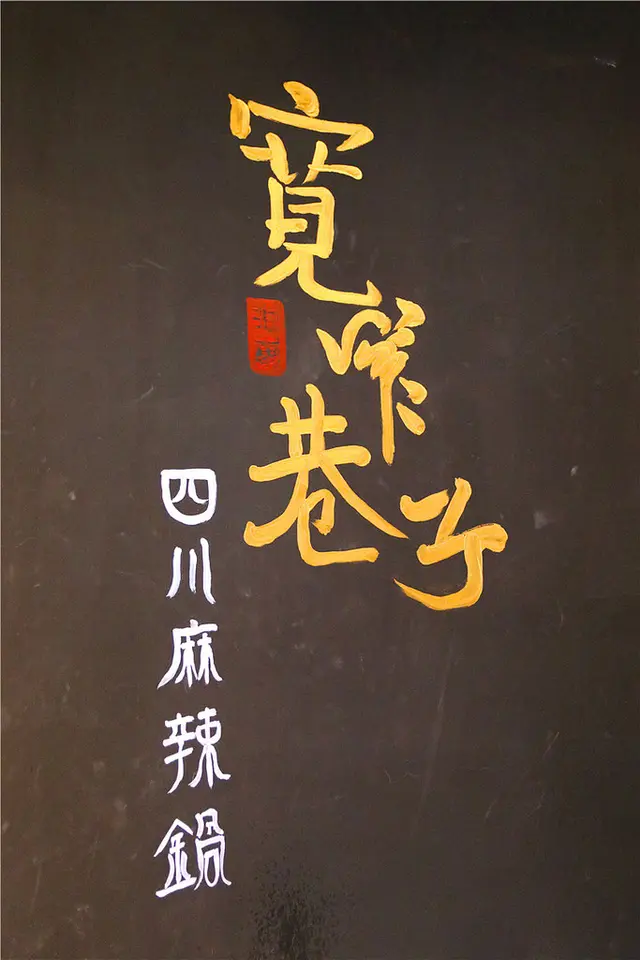 寬咋巷子
四川麻辣鍋